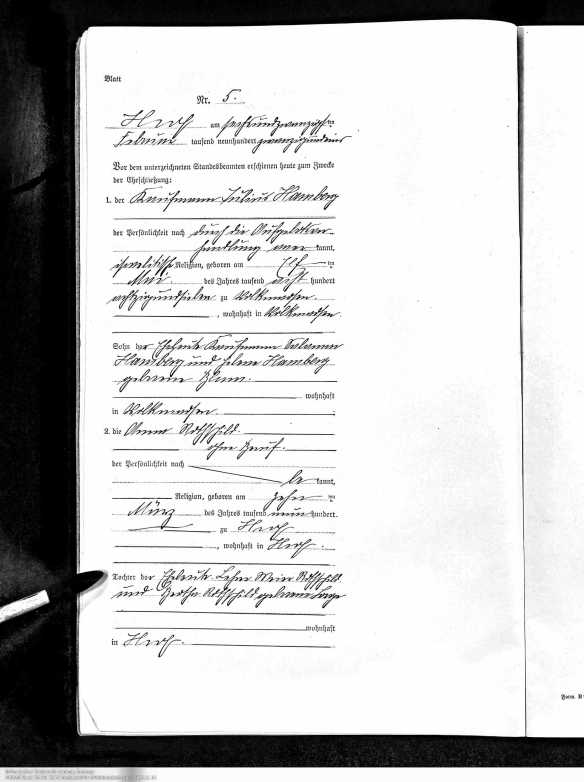 Blatt
Nr. 5.
am sechsundzwanzigsten
Februar tausend neunhundert zwanzigund
Vor dem unterzeichneten Standesbeamten erschienen heute zum Zwecke
der Eheschließung:
1. der Kaufmann Julius Hamberg
der Persönlichkeit nach durch die Aufgebotsver-
handlung aner kannt,
israelitische Religion, geboren am elf ten
Mai des Jahres tausend acht hundert
achtzigundsieben zu Volkmarsen.
, wohnhaft in Volkmarsen.
Sohn der Eheleute Kaufmann Salomon
Hamberg und Helene Hamberg
geborene Blum.
wohnhaft
in Volkmarsen.
2. die Anna Rothschild.
ohne Beruf.
der Persönlichkeit nach
be kannt,
Religion, geboren am zehn ten
März des Jahres tausend neun hundert
zu
, wohnhaft in
Tochter der Eheleute Lehrer Meier Rothschild
und Bertha Rothschild geborene
wohnhaft
in
Form.